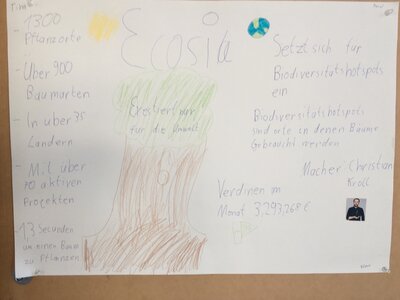 Ecosia
- 1300
Pflanzorte
- Über 900
Baumarten
- In über 35
Ländern
- Mit über
70 aktiven
Projekten
- 13 Sekunden
um einen Baum
zu Pflanzen
für die Umwelt
Setzt sich für
Biodiversitätshotspots
ein
Biodiversitätshotspots
sind orte in denen Bäume
Gebraucht werden
Macher: Christian
Kroll
Verdinen im
Monat 3,293,268 €